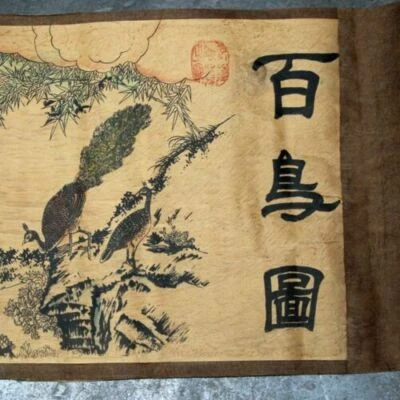 百鳥圖